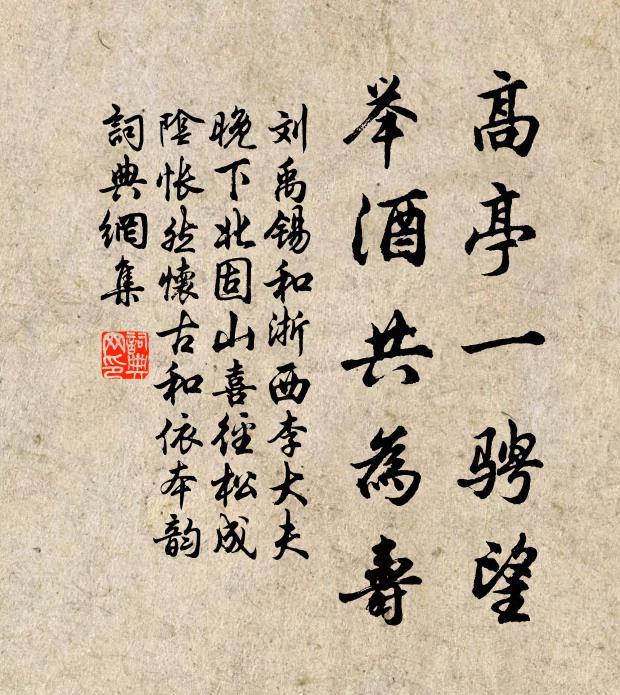 高亭一骋望
举酒共為壽
刘禹锡和浙西李大夫
晚下北固山喜径松成
陰怅然懷古和依本韵
詞典網集
詞典網印